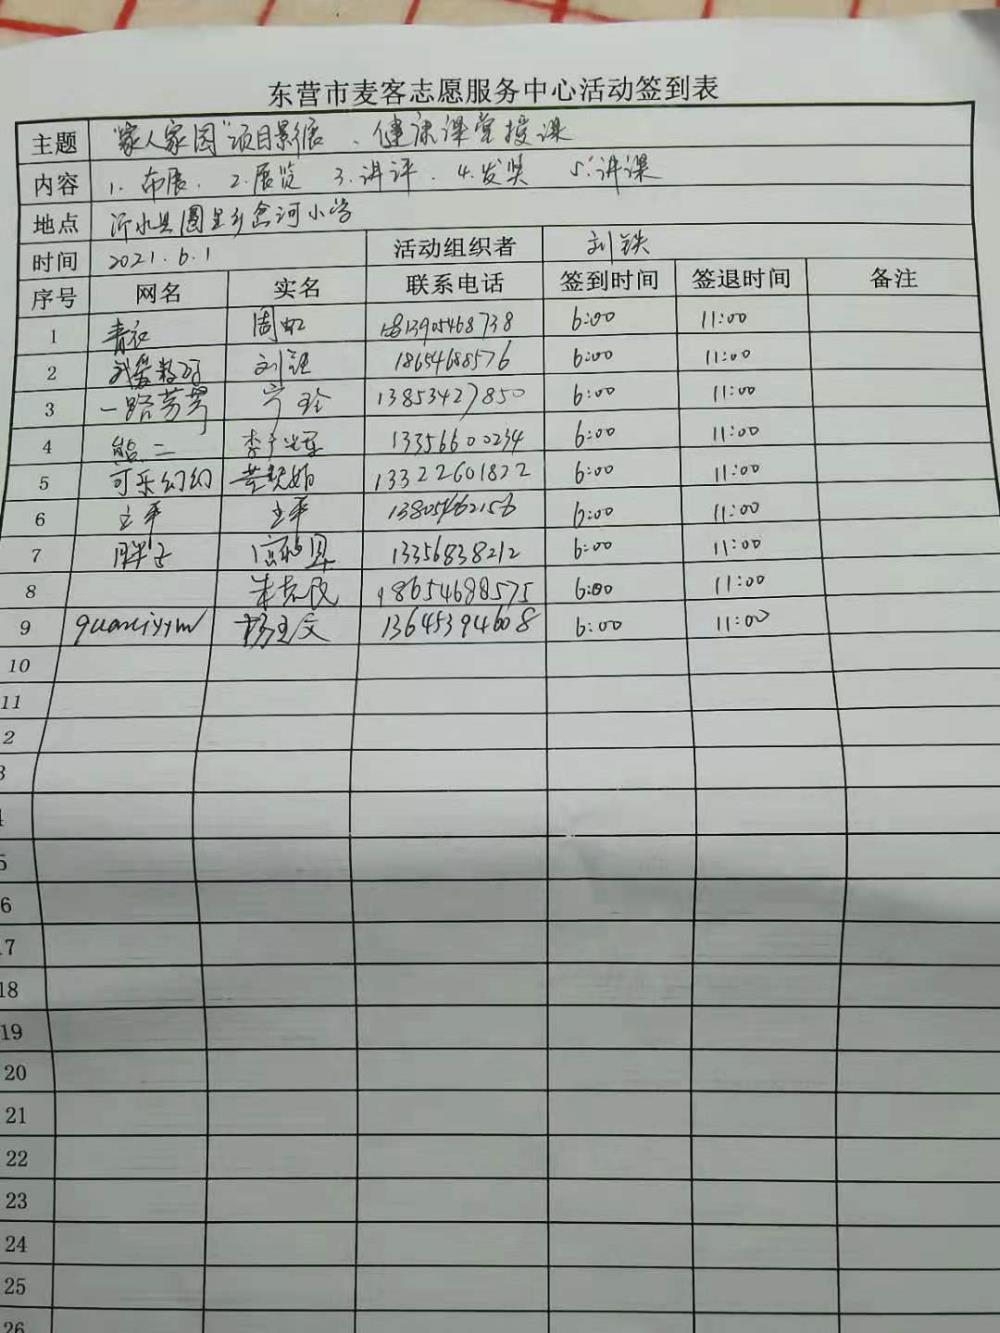 东营市麦客志愿服务中心活动签到表
主题 "家人家园"项目影展、健康课堂授课
内容 1. 布展. 2. 展览 3. 讲评. 4. 发奖 5. 讲课
地点 沂水县圈里乡 河小学
时间 2021.6.1 活动组织者 刘铁
序号 网名 实名 联系电话 签到时间 签退时间 备注
1 青衣 周虹 13905468738 6:00 11:00
2 刘 18654688576 6:00 11:00
3 一路芳芳 宁玲 13853427850 6:00 11:00
4 熊二 李 13356600234 6:00 11:00
5 可乐幻幻 13322601822 6:00 11:00
6 立平 立平 13805462156 6:00 11:00
7 胖子 13356838212 6:00 11:00
8 朱 18654698575 6:00 11:00
9 杨 文 13645394608 6:00 11:00
10
11
2
3
4
5
6
17
18
19
20
21
22
23
24
25
26